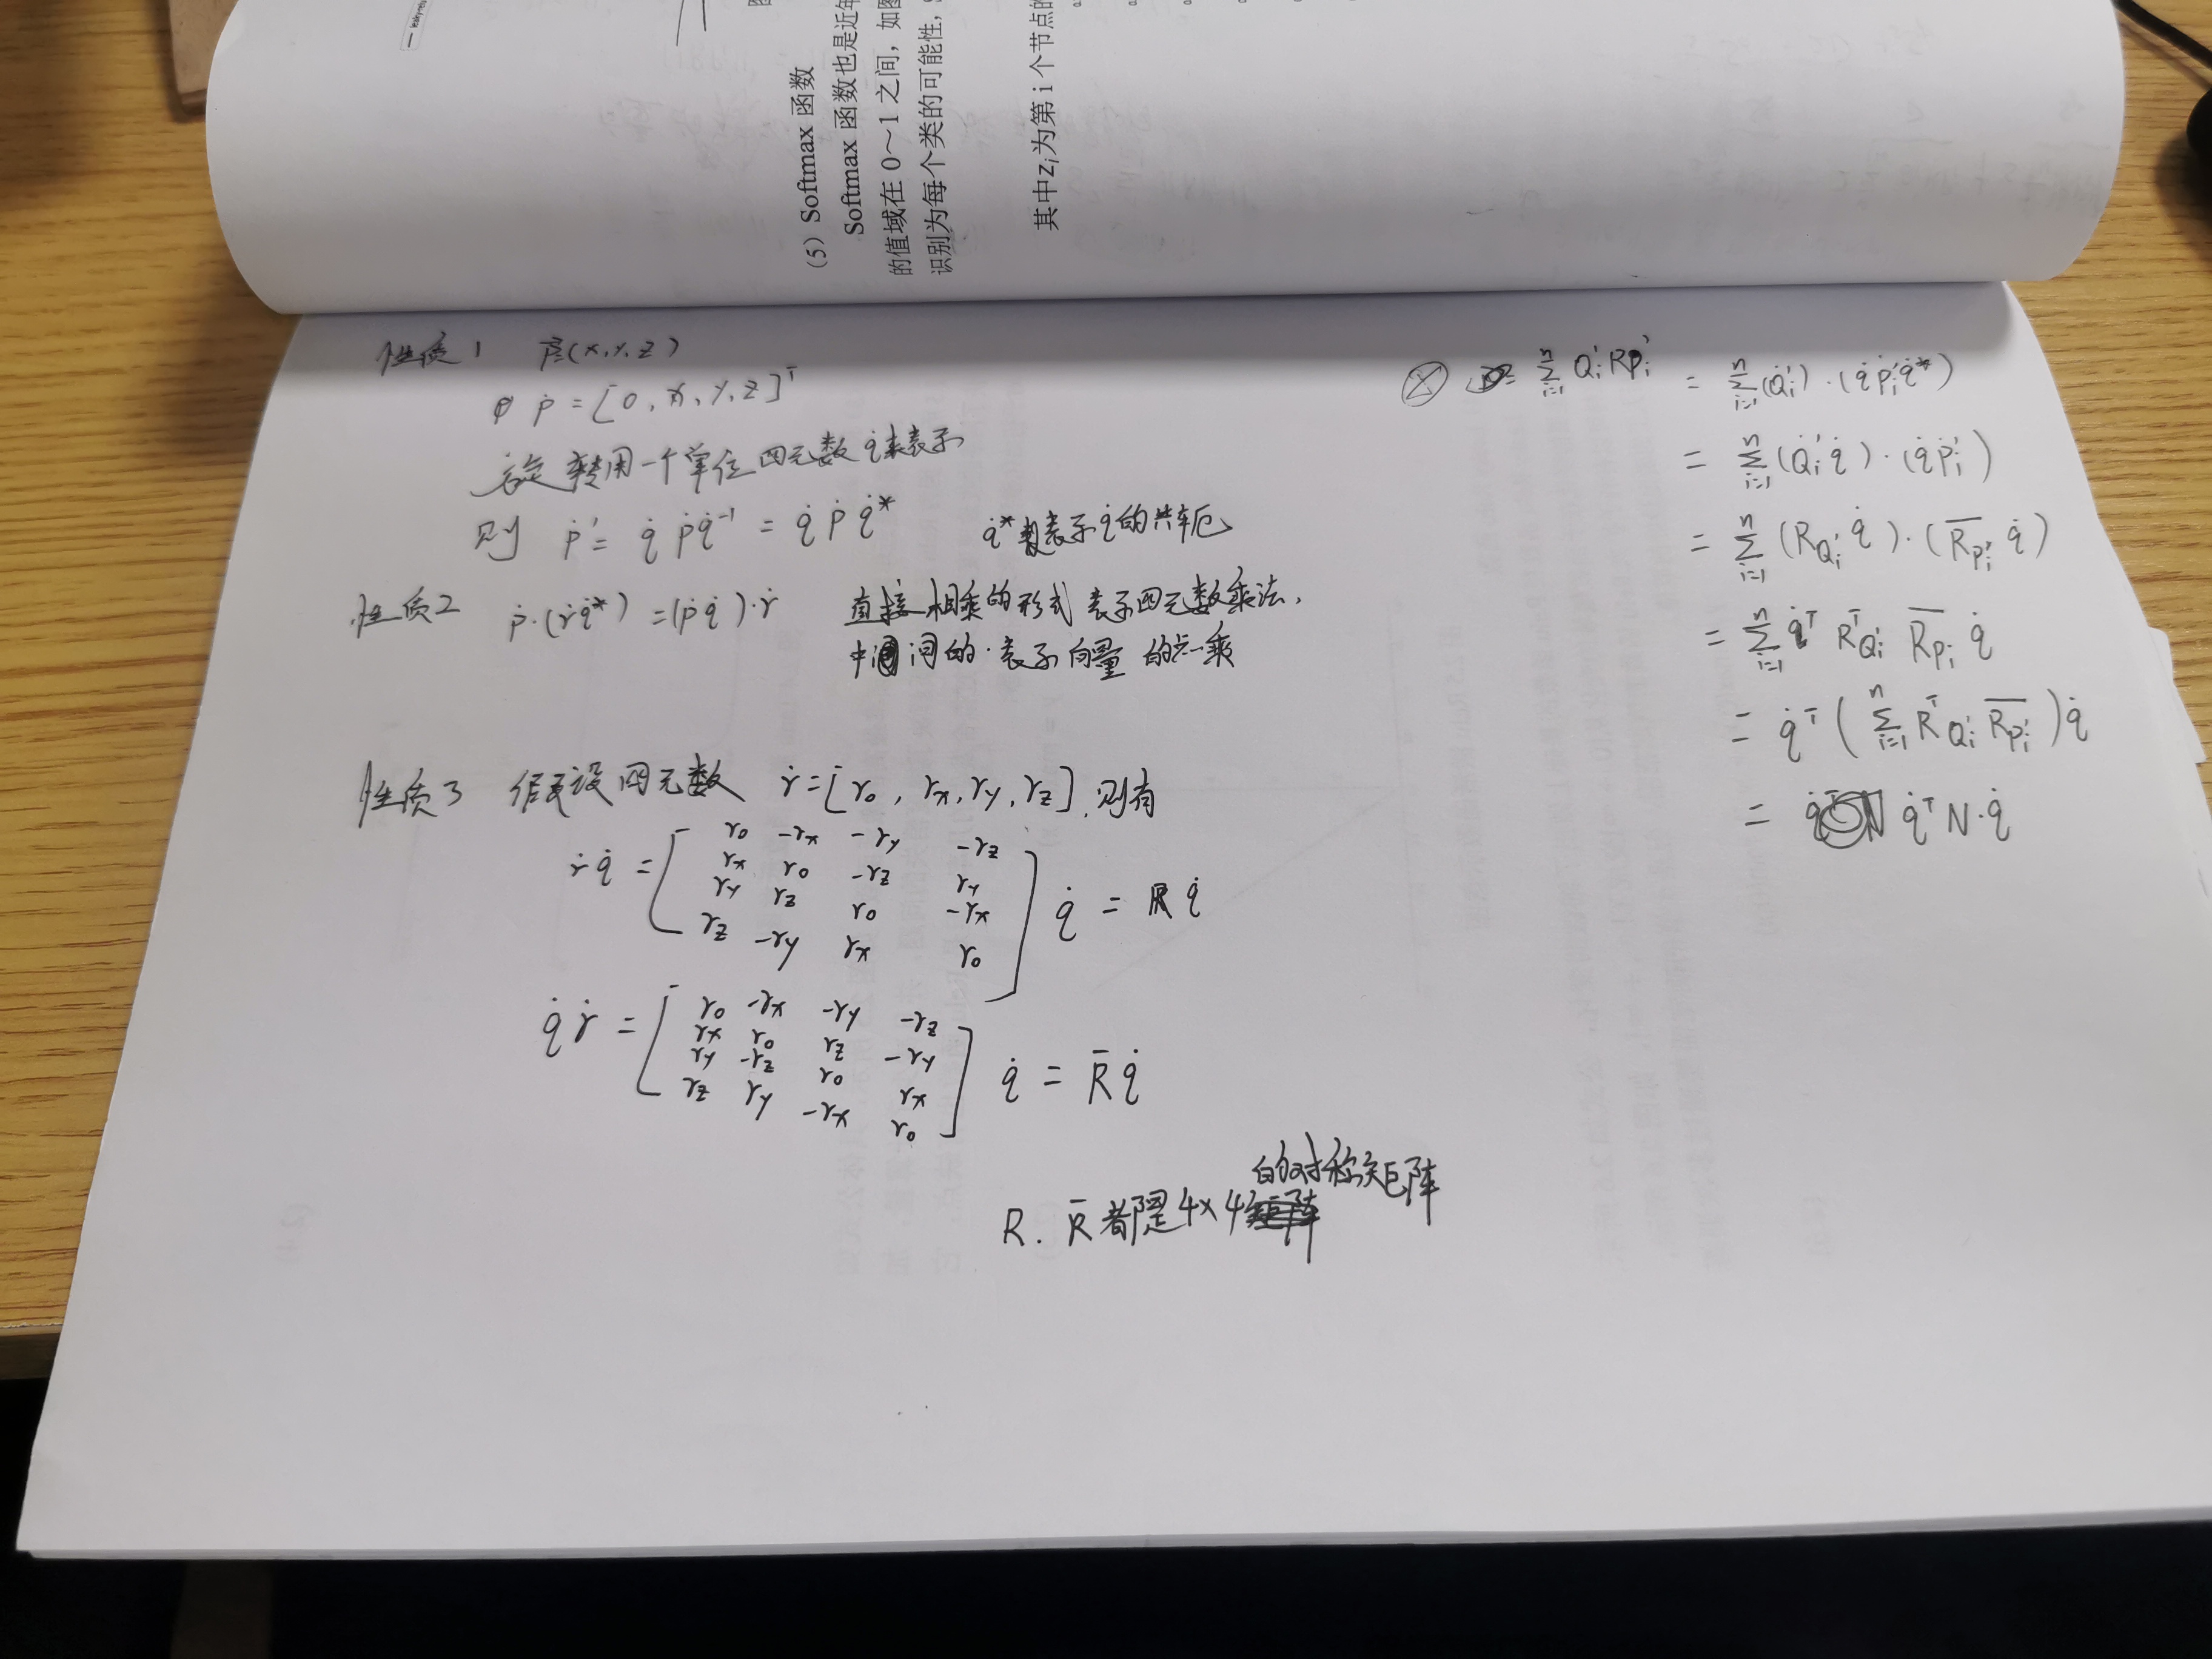 (5) Softmax 函数
Softmax 函数也是近年
的值域在 0～1 之间，如图
识别为每个类的可能性，
其中zi为第 i 个节点的
性质1 P(x,y,z)
ṗ = [0, x, y, z]ᵀ
旋转用一个单位四元数 q̇ 来表示
则 ṗ' = q̇ ṗ q̇⁻¹ = q̇ ṗ q̇* q̇*表示q̇的共轭
性质2 ṗ·(ṙq̇*) = (ṗq̇)·ṙ 直接相乘的形式表示四元数乘法，
中间的·表示向量的点乘
性质3 假设四元数 ṙ=[r₀, rx, ry, rz],则有
ṙq̇ = [ r₀ -rx -ry -rz
rx r₀ -rz ry
ry rz r₀ -rx
rz -ry rx r₀ ] q̇ = R q̇
q̇ṙ = [ r₀ -rx -ry -rz
rx r₀ rz -ry
ry -rz r₀ rx
rz ry -rx r₀ ] q̇ = R̄ q̇
R. R̄ 都是4×4的对称矩阵
Σⁿᵢ₌₁ Qᵢ'RPᵢ' = Σⁿᵢ₌₁ (Q̇ᵢ')·(q̇ṗᵢ'q̇*)
= Σⁿᵢ₌₁ (Q̇ᵢ'q̇)·(q̇ṗᵢ')
= Σⁿᵢ₌₁ (R_Qᵢ' q̇)·(R̄_pᵢ' q̇)
= Σⁿᵢ₌₁ q̇ᵀ Rᵀ_Qᵢ' R̄_Pᵢ' q̇
= q̇ᵀ ( Σⁿᵢ₌₁ Rᵀ_Qᵢ' R̄_pᵢ' ) q̇
= q̇ᵀ N·q̇